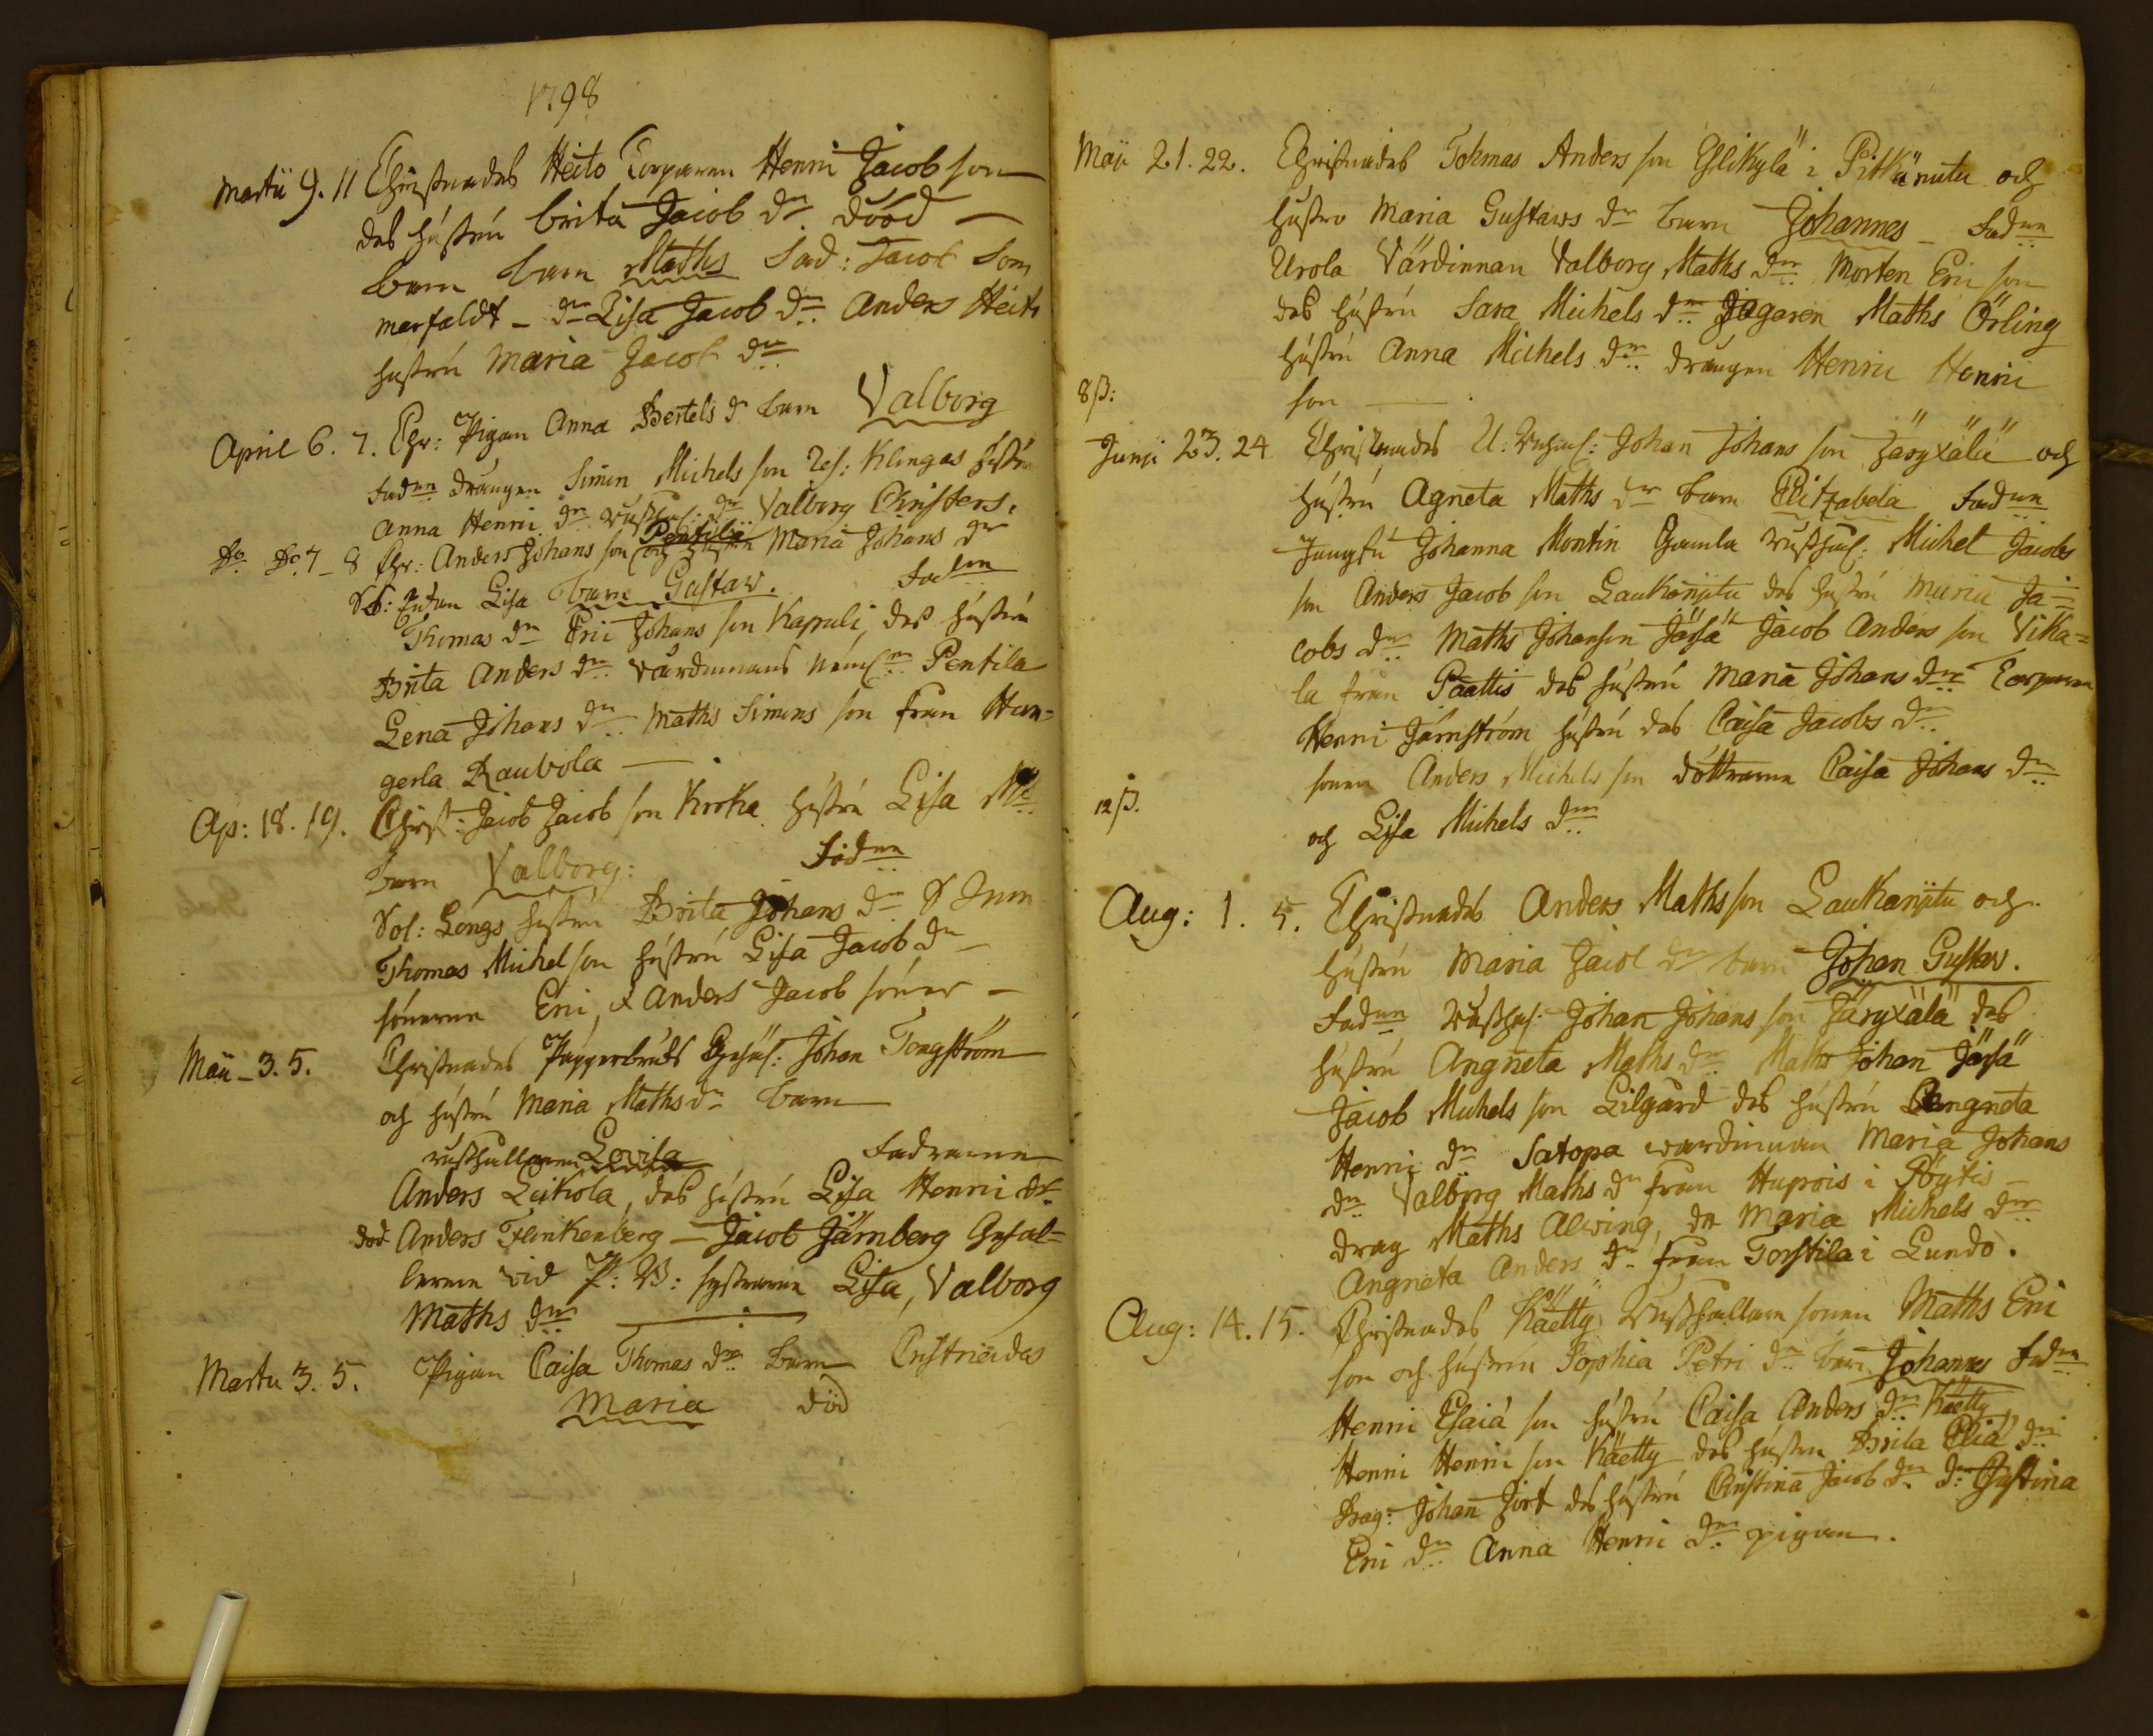 1798
Martii 9. 11 Christnades Heito Torparen Henri Jacob son
des hustru brita Jacob dr död —
barn barn Maths Fad: Jacob Som
marfeldt – dn Lisa Jacob dr Anders Heito
hustru Maria Jacob dr
April 6. 7. Chr: Pigan Anna Bertels d barn Valborg
Fadrne drängen Simon Michels son Ref: Klingas hustru
Anna Henri dr Rusth: dr Valborg Christers.
Do Do 7 _ 8 Chr: Anders Johans son Pentilä och hustru Maria Johans dr
barn Gustaw. Fadrne
Sol: Enkan Lisa
Thomas dr Eric Johans son Kapuli, des hustru
Brita Anders dr wärdinnans Pentila
Lena Johans dr Maths Simons son från Han=
gerla Raukola —
Ap: 18. 19. Christ: Jacob Jacob son Kroka hustru Lisa
barn Valborg: Fadrne
Sol: Längs hustru Brita Johans dr
Thomas Michel son hustru Lisa Jacob dr
sönerne Eric, & Anders Jacob söner –
Maii – 3. 5. Christnades Pappersbruks Gesäl: Johan Tongström
och hustru Maria Maths dr barn
Lovisa Fadrarna
rusthållaren
Anders Leikola, des hustru Lisa Henri dr
död Anders Flinkenberg – Jacob Järnberg Gesäl=
lerne vid P: B: systrarne Lisa, Valborg
Maths dr —
Martii 3. 5. Pigan Caisa Thomas dr barn Cristnades
Maria död
Maii 21. 22. Christnades Tohmas Anders son Ylikylä i Pitkäniitu och
hustru Maria Gustaws dr barn Johannes – Fadrne
Urola Värdinnan Valborg Maths dr Morten Eric son
des hustru Sara Michels dr Jägaren Maths Örling
hustru Anna Michels dr drängen Henric Henric
8 ß: son —
Junii 23. 24 Christnades U: Rusthål: Johan Johans son Järyxälä och
hustru Agneta Maths dr barn Elitzabeta Fadrne
Jungfru Johanna Montin Gamla Rusthål: Michel Jacobs
son Anders Jacob son Laukanjitu des hustru Maria Ja=
cobs dr Maths Johanson Jässä Jacob Anders son Vika=
la från Paattis des hustru Maria Johans dr Torparen
Henri Järnström hustru des Caisa Jacobs dr
sonen Anders Michels son döttrarna Caisa Johans dr
12 ß. och Lisa Michels dr
Aug: 1. 5. Christnades Anders Maths son Laukanjitu och
hustru Maria Jacob dr barn Johan Gustav.
Fadrne Rusthål: Johan Johans son Järyxälä des
hustru Angneta Maths dr Maths Johan Jässä
Jacob Michels son Lilgård des hustru Angneta
Henri dr Satopa wärdinnan Maria Johans
dr Valborg Maths dr från Hupois i Pöytis –
drag Maths Alving, Maria Michels dr
Angneta Anders dr från Torstila i Lundo.
Aug: 14. 15. Christnades Käetty Rusthållare sonen Maths Eric
son och hustru Sophia Petri dr barn Johannes Fadrne
Henric Esaiä son hustru Caisa Anders dr Käetty
Henri Henri son Käetty des hustru Brita Eliä dr
Drag: Johan Jort des hustru Christina Jacob dr dr Christina
Eric dr Anna Henric dr pigan.